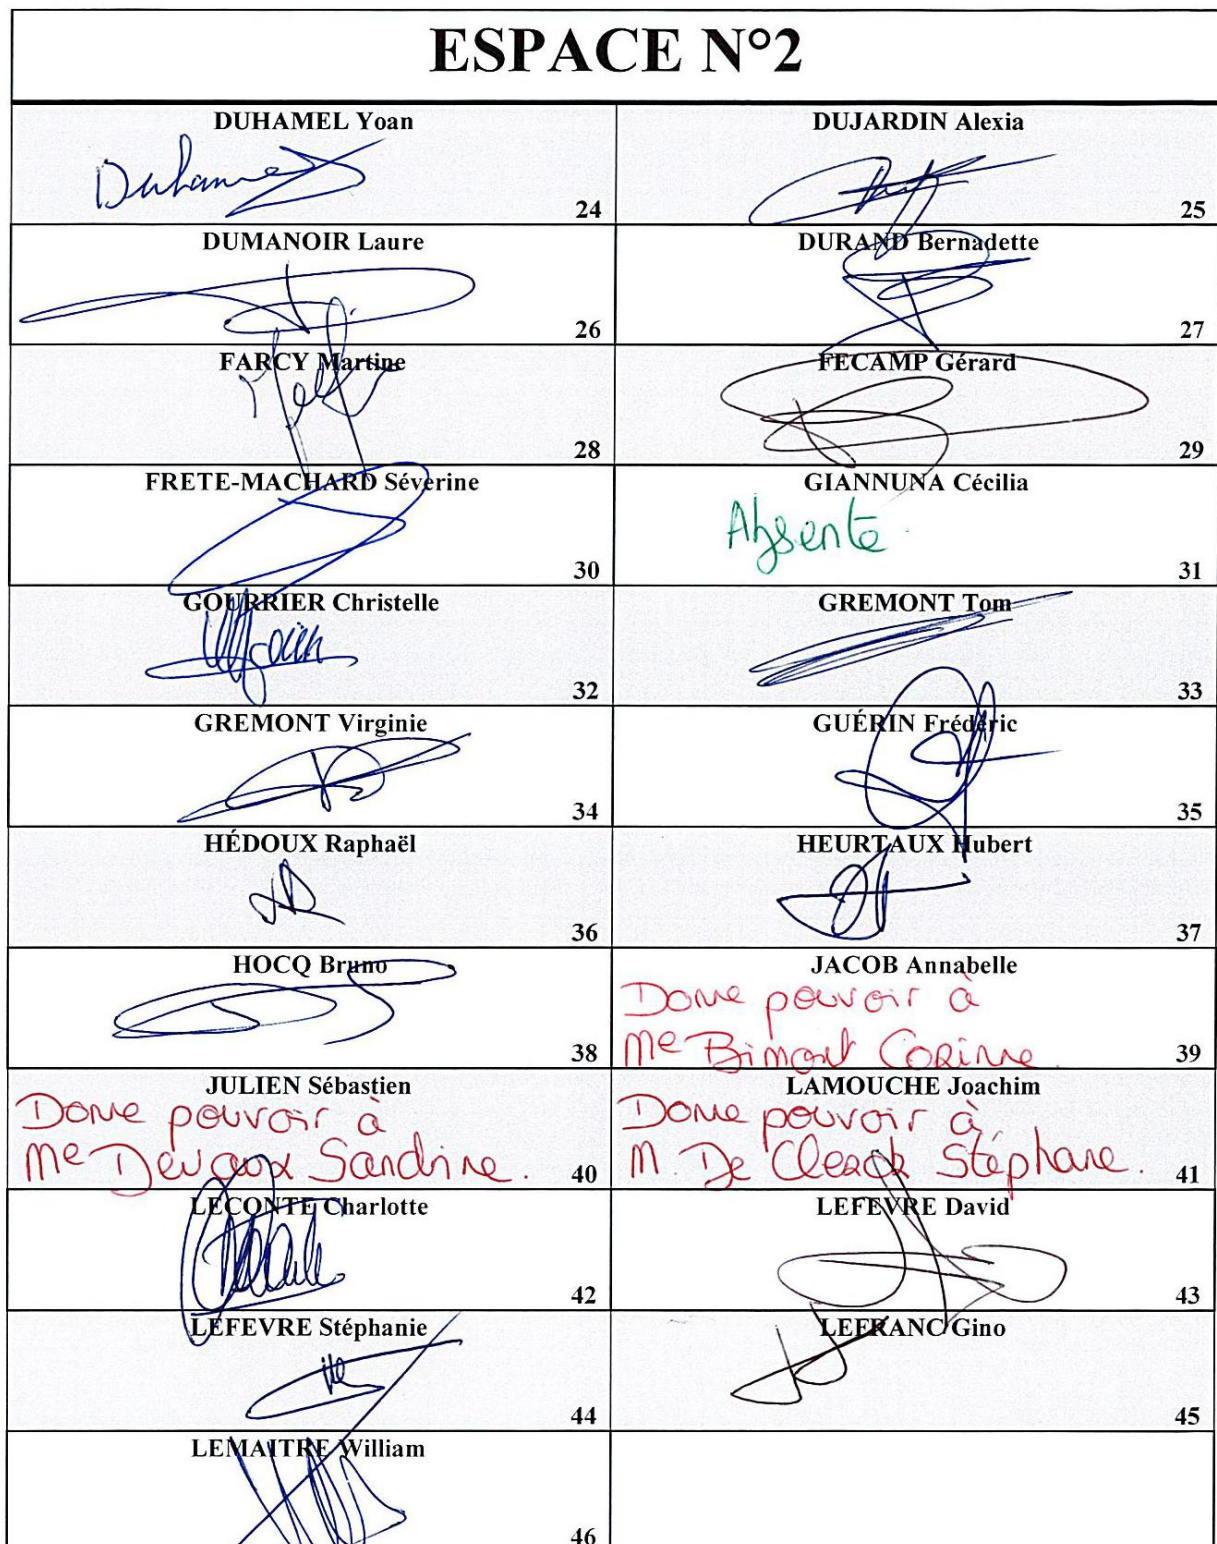 ESPACE N°2
DUHAMEL Yoan
Duhamel
24
DUJARDIN Alexia
25
DUMANOIR Laure
26
DURAND Bernadette
27
FARCY Martine
28
FECAMP Gérard
29
FRETE-MACHARD Séverine
30
GIANNUNA Cécilia
Absente.
31
GOURRIER Christelle
32
GREMONT Tom
33
GREMONT Virginie
34
GUÉRIN Frédéric
35
HÉDOUX Raphaël
36
HEURTAUX Hubert
37
HOCQ Bruno
38
JACOB Annabelle
Donne pouvoir à
Me Bimont Corinne.
39
JULIEN Sébastien
Donne pouvoir à
Me Devaux Sandrine.
40
LAMOUCHE Joachim
Donne pouvoir à
M. De Clerck Stéphane.
41
LECONTE Charlotte
42
LEFEVRE David
43
LEFEVRE Stéphanie
44
LEFRANC Gino
45
LEMAITRE William
46